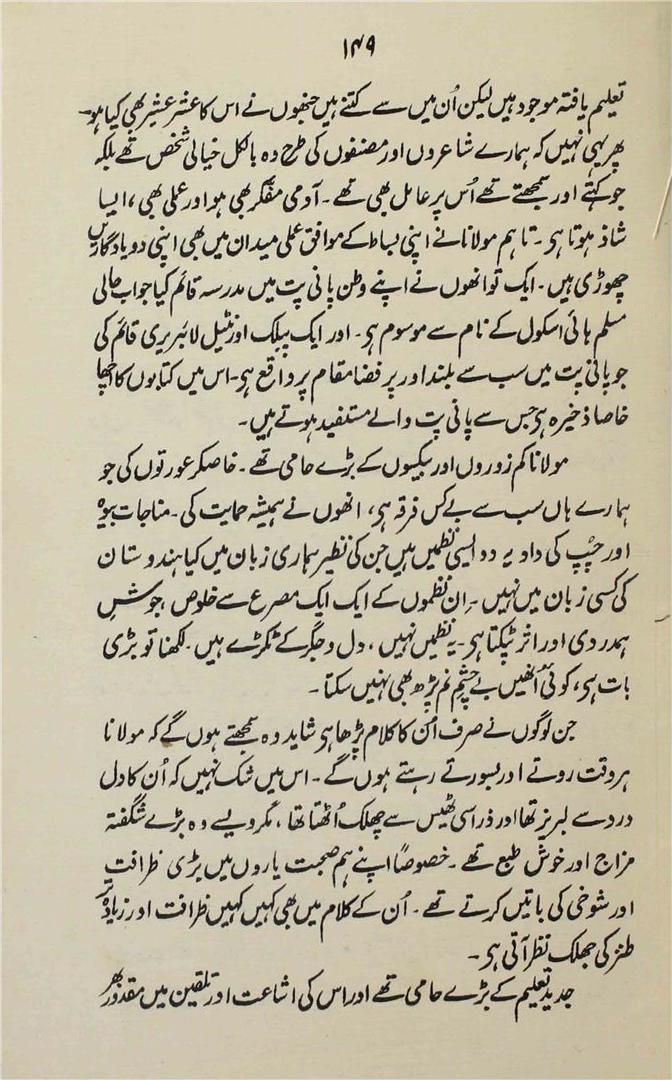 ۱۴۹
تعلیم یافتہ موجود ہیں لیکن اُن میں سے کتنے ہیں جنھوں نے اس کا عشر عشیر بھی کیا ہو۔
پھر یہی نہیں کہ ہمارے شاعروں اور مصنفوں کی طرح وہ بالکل خیالی شخص تھے بلکہ
جو کہتے اور سمجھتے تھے اُس پر عامل بھی تھے۔ آدمی مفکر بھی ہو اور عملی بھی، ایسا
شاذ ہوتا ہی۔ تاہم مولانا نے اپنی بساط کے موافق عملی میدان میں بھی اپنی دو یادگاریں
چھوڑی ہیں۔ ایک تو انھوں نے اپنے وطن پانی پت میں مدرسہ قائم کیا جو اب حالی
مسلم ہائی اسکول کے نام سے موسوم ہی۔ اور ایک پبلک اورنٹیل لائبریری قائم کی
جو پانی پت میں سب سے بلند اور پر فضا مقام پر واقع ہی۔ اس میں کتابوں کا اچھا
خاصا ذخیرہ ہی جس سے پانی پت والے مستفید ہوتے ہیں۔
مولانا کم زوروں اور بیکسوں کے بڑے حامی تھے۔ خاصکر عورتوں کی جو
ہمارے ہاں سب سے بے کس فرقہ ہی، انھوں نے ہمیشہ حمایت کی۔ مناجات بیوہ
اور چُپ کی داد یہ دو ایسی نظمیں ہیں جن کی نظیر ہماری زبان میں کیا ہندوستان
کی کسی زبان میں نہیں۔ اِن نظموں کے ایک ایک مصرع سے خلوص، جوشِ
ہمدردی اور اثر ٹپکتا ہی۔ یہ نظمیں نہیں، دل و جگر کے ٹکڑے ہیں۔ لکھنا تو بڑی
بات ہی، کوئی اُنھیں بے چشمِ نم پڑھ بھی نہیں سکتا۔
جن لوگوں نے صرف اُن کا کلام پڑھا ہی شاید وہ سمجھتے ہوں گے کہ مولانا
ہر وقت روتے اور بسورتے رہتے ہوں گے۔ اس میں شک نہیں کہ اُن کا دل
درد سے لبریز تھا اور ذرا سی ٹھیس سے چھلک اُٹھتا تھا، مگر ویسے وہ بڑے شگفتہ
مزاج اور خوش طبع تھے۔ خصوصاً اپنے ہم صحبت یاروں میں بڑی ظرافت
اور شوخی کی باتیں کرتے تھے۔ اُن کے کلام میں بھی کہیں کہیں ظرافت اور زیادہ تر
طنز کی جھلک نظر آتی ہی۔
جدید تعلیم کے بڑے حامی تھے اور اس کی اشاعت اور تلقین میں مقدور بھر